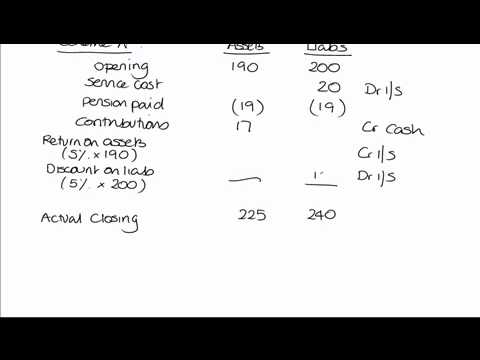 Assets Liabs
Opening 190 200
Service cost 20 Dr I/S
Pension paid (19) (19)
Contributions 17 Cr Cash
Return on assets
(5% x 190) Cr I/S
Discount on liab
(5% x 200) Dr I/S
Actual Closing 225 240